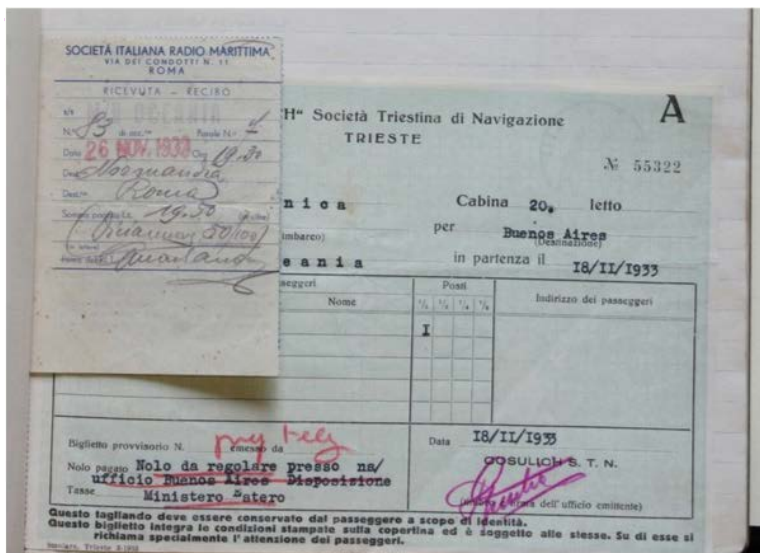 SOCIETÀ ITALIANA RADIO MARITTIMA
VIA DEI CONDOTTI N. 11
ROMA
RICEVUTA – RECIBO
M/N OCEANIA
N.º 83 Parole N.º
Data 26 NOV. 1933 Ore 19.30
Dest.ne Roma
Somma pagata Lit. 19.50
(in lettere)
"H" Società Triestina di Navigazione
TRIESTE
A
№ 55322
nica Cabina 20. letto
imbarco) per Buenos Aires
(Destinazione)
eania in partenza il 18/II/1933
asseggeri Posti Indirizzo dei passeggeri
Nome
I
Biglietto provvisorio N. emesso da
Nolo pagato Nolo da regolare presso na/
ufficio Buenos Aires Disposizione
Tasse Ministero Satero
Data 18/II/1933
COSULICH S. T. N.
dell'ufficio emittente)
Questo tagliando deve essere conservato dal passeggero a scopo di identità.
Questo biglietto integra le condizioni stampate sulla copertina ed è soggetto alle stesse. Su di esse si
richiama specialmente l'attenzione dei passeggeri.